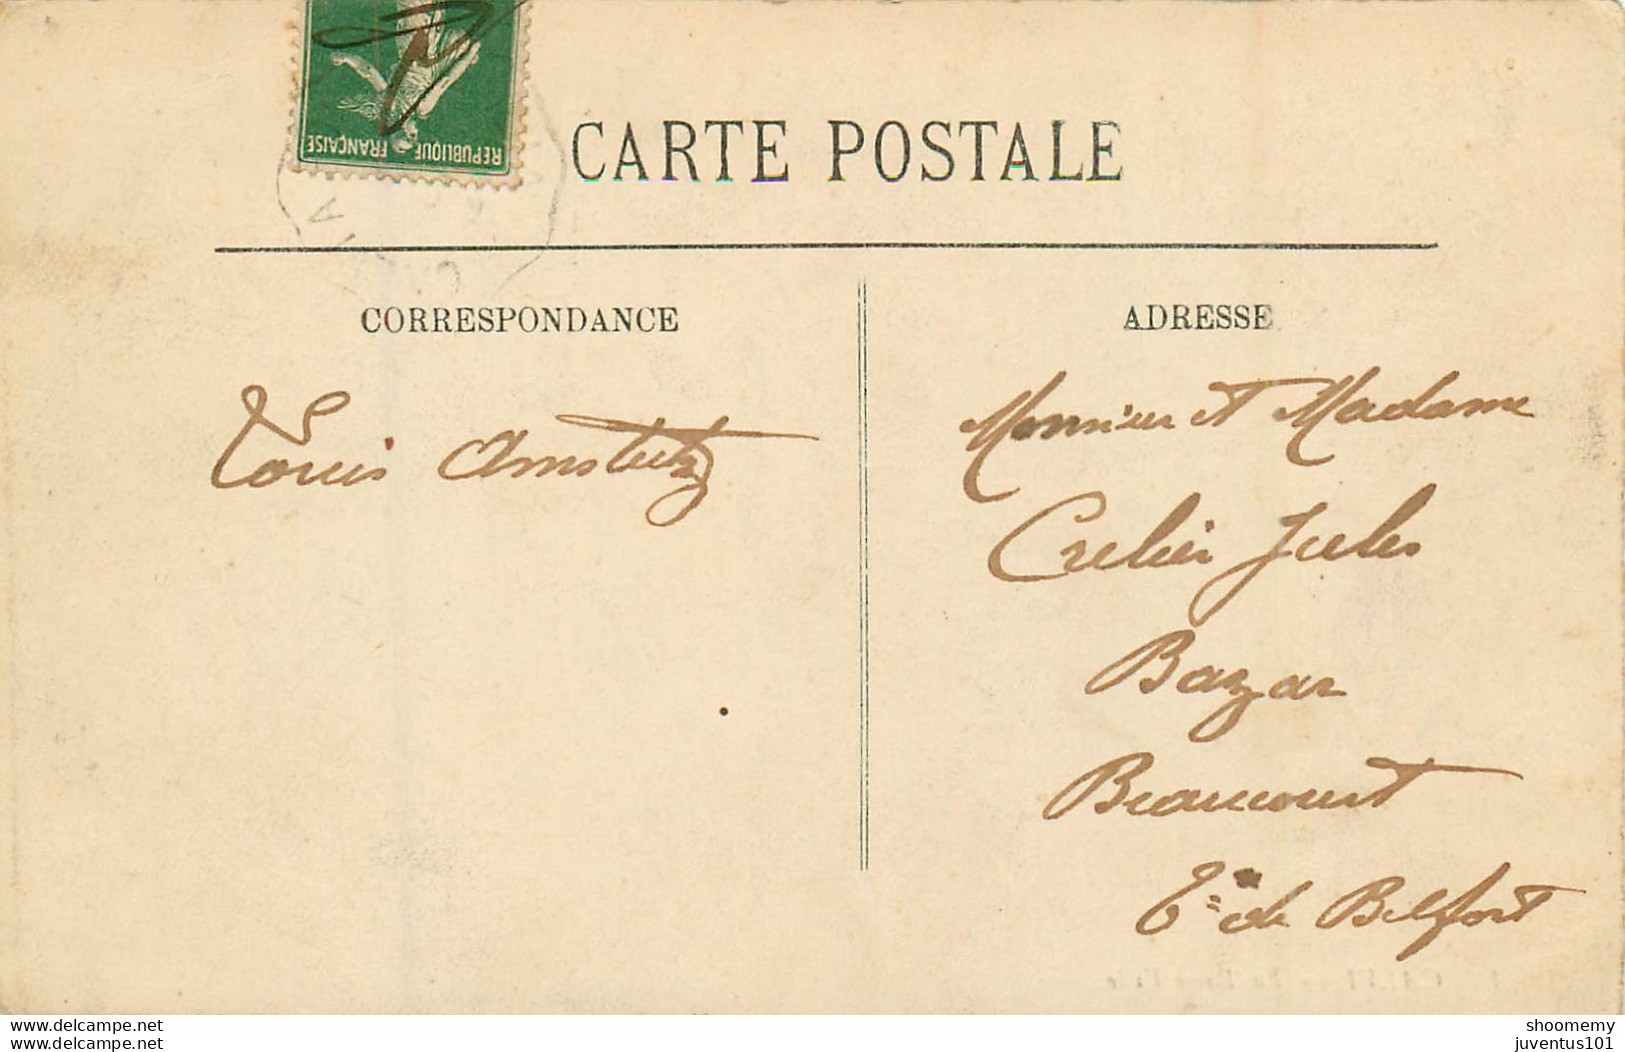 REPUBLIQUE FRANÇAISE
CARTE POSTALE
CORRESPONDANCE
Louis Amstutz
ADRESSE
Monsieur et Madame
Crelier Jules
Bazar
Beaucourt
Tre de Belfort
www.delcampe.net
www.delcampe.net
shoomemy
juventus101